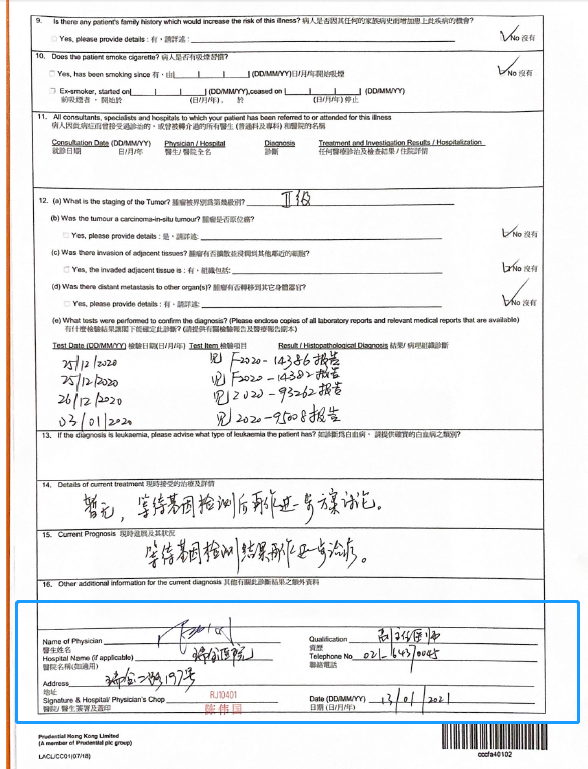 9. Is there any patient's family history which would increase the risk of this illness? 病人是否因其任何的家族病史而增加患上此疾病的機會?
Yes, please provide details : 有，請詳述:
No 沒有
10. Does the patient smoke cigarette? 病人是否有吸煙習慣?
Yes, has been smoking since 有，由 (DD/MM/YY)日/月/年開始吸煙
No 沒有
Ex-smoker, started on (DD/MM/YY),ceased on (DD/MM/YY)
前吸煙者，開始於 (日/月/年)，於 (日/月/年) 停止
11. All consultants, specialists and hospitals to which your patient has been referred to or attended for this illness
病人因此病症而曾接受過診治的，或曾被轉介過的所有醫生 (普通科及專科) 和醫院的名稱
Consultation Date (DD/MM/YY) Physician / Hospital Diagnosis Treatment and Investigation Results / Hospitalization
就診日期 日/月/年 醫生/ 醫院全名 診斷 任何醫療診治及檢查結果 / 住院詳情
12. (a) What is the staging of the Tumor? 腫瘤被界別為第幾級別? II级
(b) Was the tumour a carcinoma-in-situ tumour? 腫瘤是否原位癌?
Yes, please provide details : 是，請詳述:
No 沒有
(c) Was there invasion of adjacent tissues? 腫瘤有否擴散並浸潤到其他鄰近的細胞?
Yes, the invaded adjacent tissue is : 有，組織包括:
No 沒有
(d) Was there distant metastasis to other organ(s)? 腫瘤有否轉移到其它身體器官?
Yes, please provide details : 有，請詳述:
No 沒有
(e) What tests were performed to confirm the diagnosis? (Please enclose copies of all laboratory reports and relevant medical reports that are available)
有什麼檢驗結果讓閣下能確定此診斷? (請提供有關檢驗報告及醫療報告副本)
Test Date (DD/MM/YY) 檢驗日期(日/月/年) Test Item 檢驗項目 Result / Histopathological Diagnosis 結果/ 病理組織診斷
25/12/2020 见 F2020-14386报告
25/12/2020 见 F2020-14382报告
26/12/2020 见 2020-93262报告
03/01/2020 见 2020-95008报告
13. If the diagnosis is leukaemia, please advise what type of leukaemia the patient has? 如診斷為白血病，請提供確實的白血病之類別?
14. Details of current treatment 現時接受的治療及詳情
暂无，等待基因检测后再作进一步方案讨论。
15. Current Prognosis 現時進展及其狀況
等待基因检测结果再作进一步治疗。
16. Other additional information for the current diagnosis 其他有關此診斷結果之額外資料
Name of Physician
醫生姓名
Qualification 副主任医师
資歷
Hospital Name (if applicable) 瑞金医院
醫院名稱(如適用)
Telephone No 021-64370045
聯絡電話
Address 瑞金二路197号
地址
RJ10401
Signature & Hospital/ Physician's Chop
陈伟国
醫院/ 醫生簽署及蓋印
Date (DD/MM/YY) 13/01/2021
日期 (日/月/年)
Prudential Hong Kong Limited
(A member of Prudential plc group)
LACL/CC01(07/18)
cccfa40102